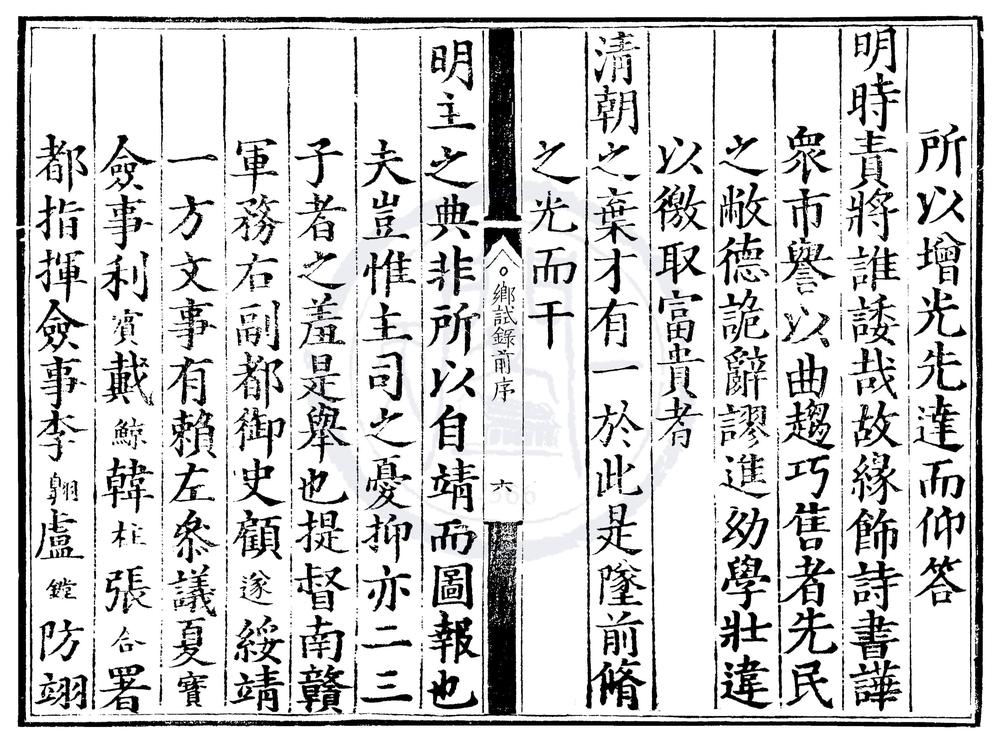 所以增光先達而仰答
明時責將誰諉哉故緣飾詩書譁
衆市譽以曲趨巧售者先民
之敝德詭辭謬進幼學壯違
以徼取富貴者
清朝之棄才有一於此是墜前脩
之光而干
鄉試錄前序
六
明主之典非所以自靖而圖報也
夫豈惟主司之憂抑亦二三
子者之羞是舉也提督南贛
軍務右副都御史顧遂綏靖
一方文事有賴左叅議夏寶
僉事利賓戴鯨韓柱張合署
都指揮僉事李翱盧鏜防翊